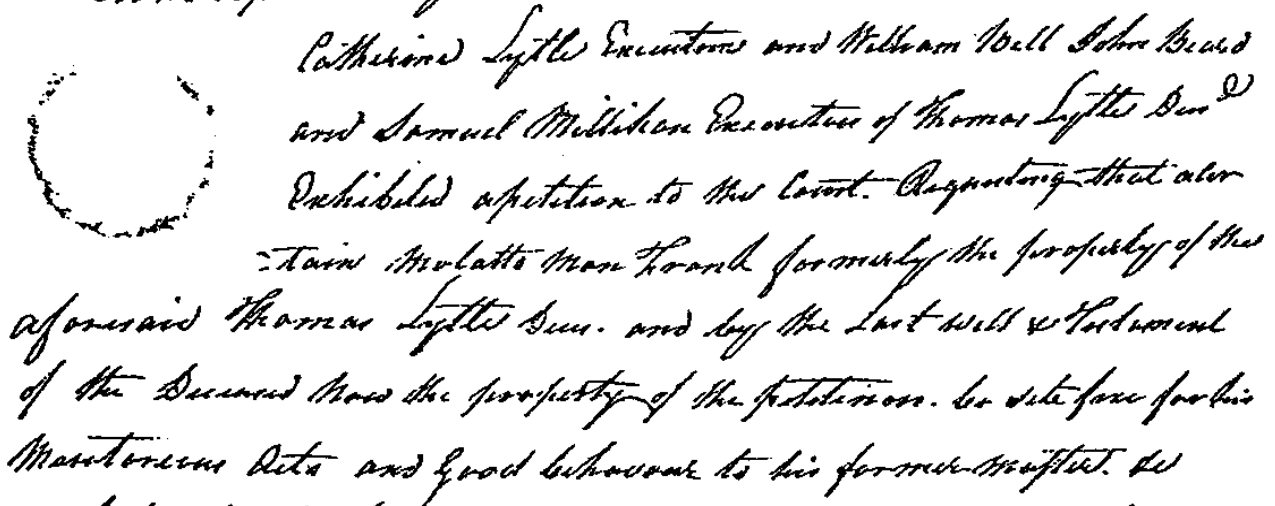 Catherine Lytle Executone and William Bell John Beard
and Samuel Millikan Executors of Thomas Lytle Decd
Exhibited a petition to this Court. Requesting that a cer
=tain Molatto Man Frank formerly the property of the
aforesaid Thomas Lytle Decd. and by the Last will & Testament
of the Deceased Now the property of the petitioner. be sete free for his
Meretoreous Acts and Good behavour to his former Master.